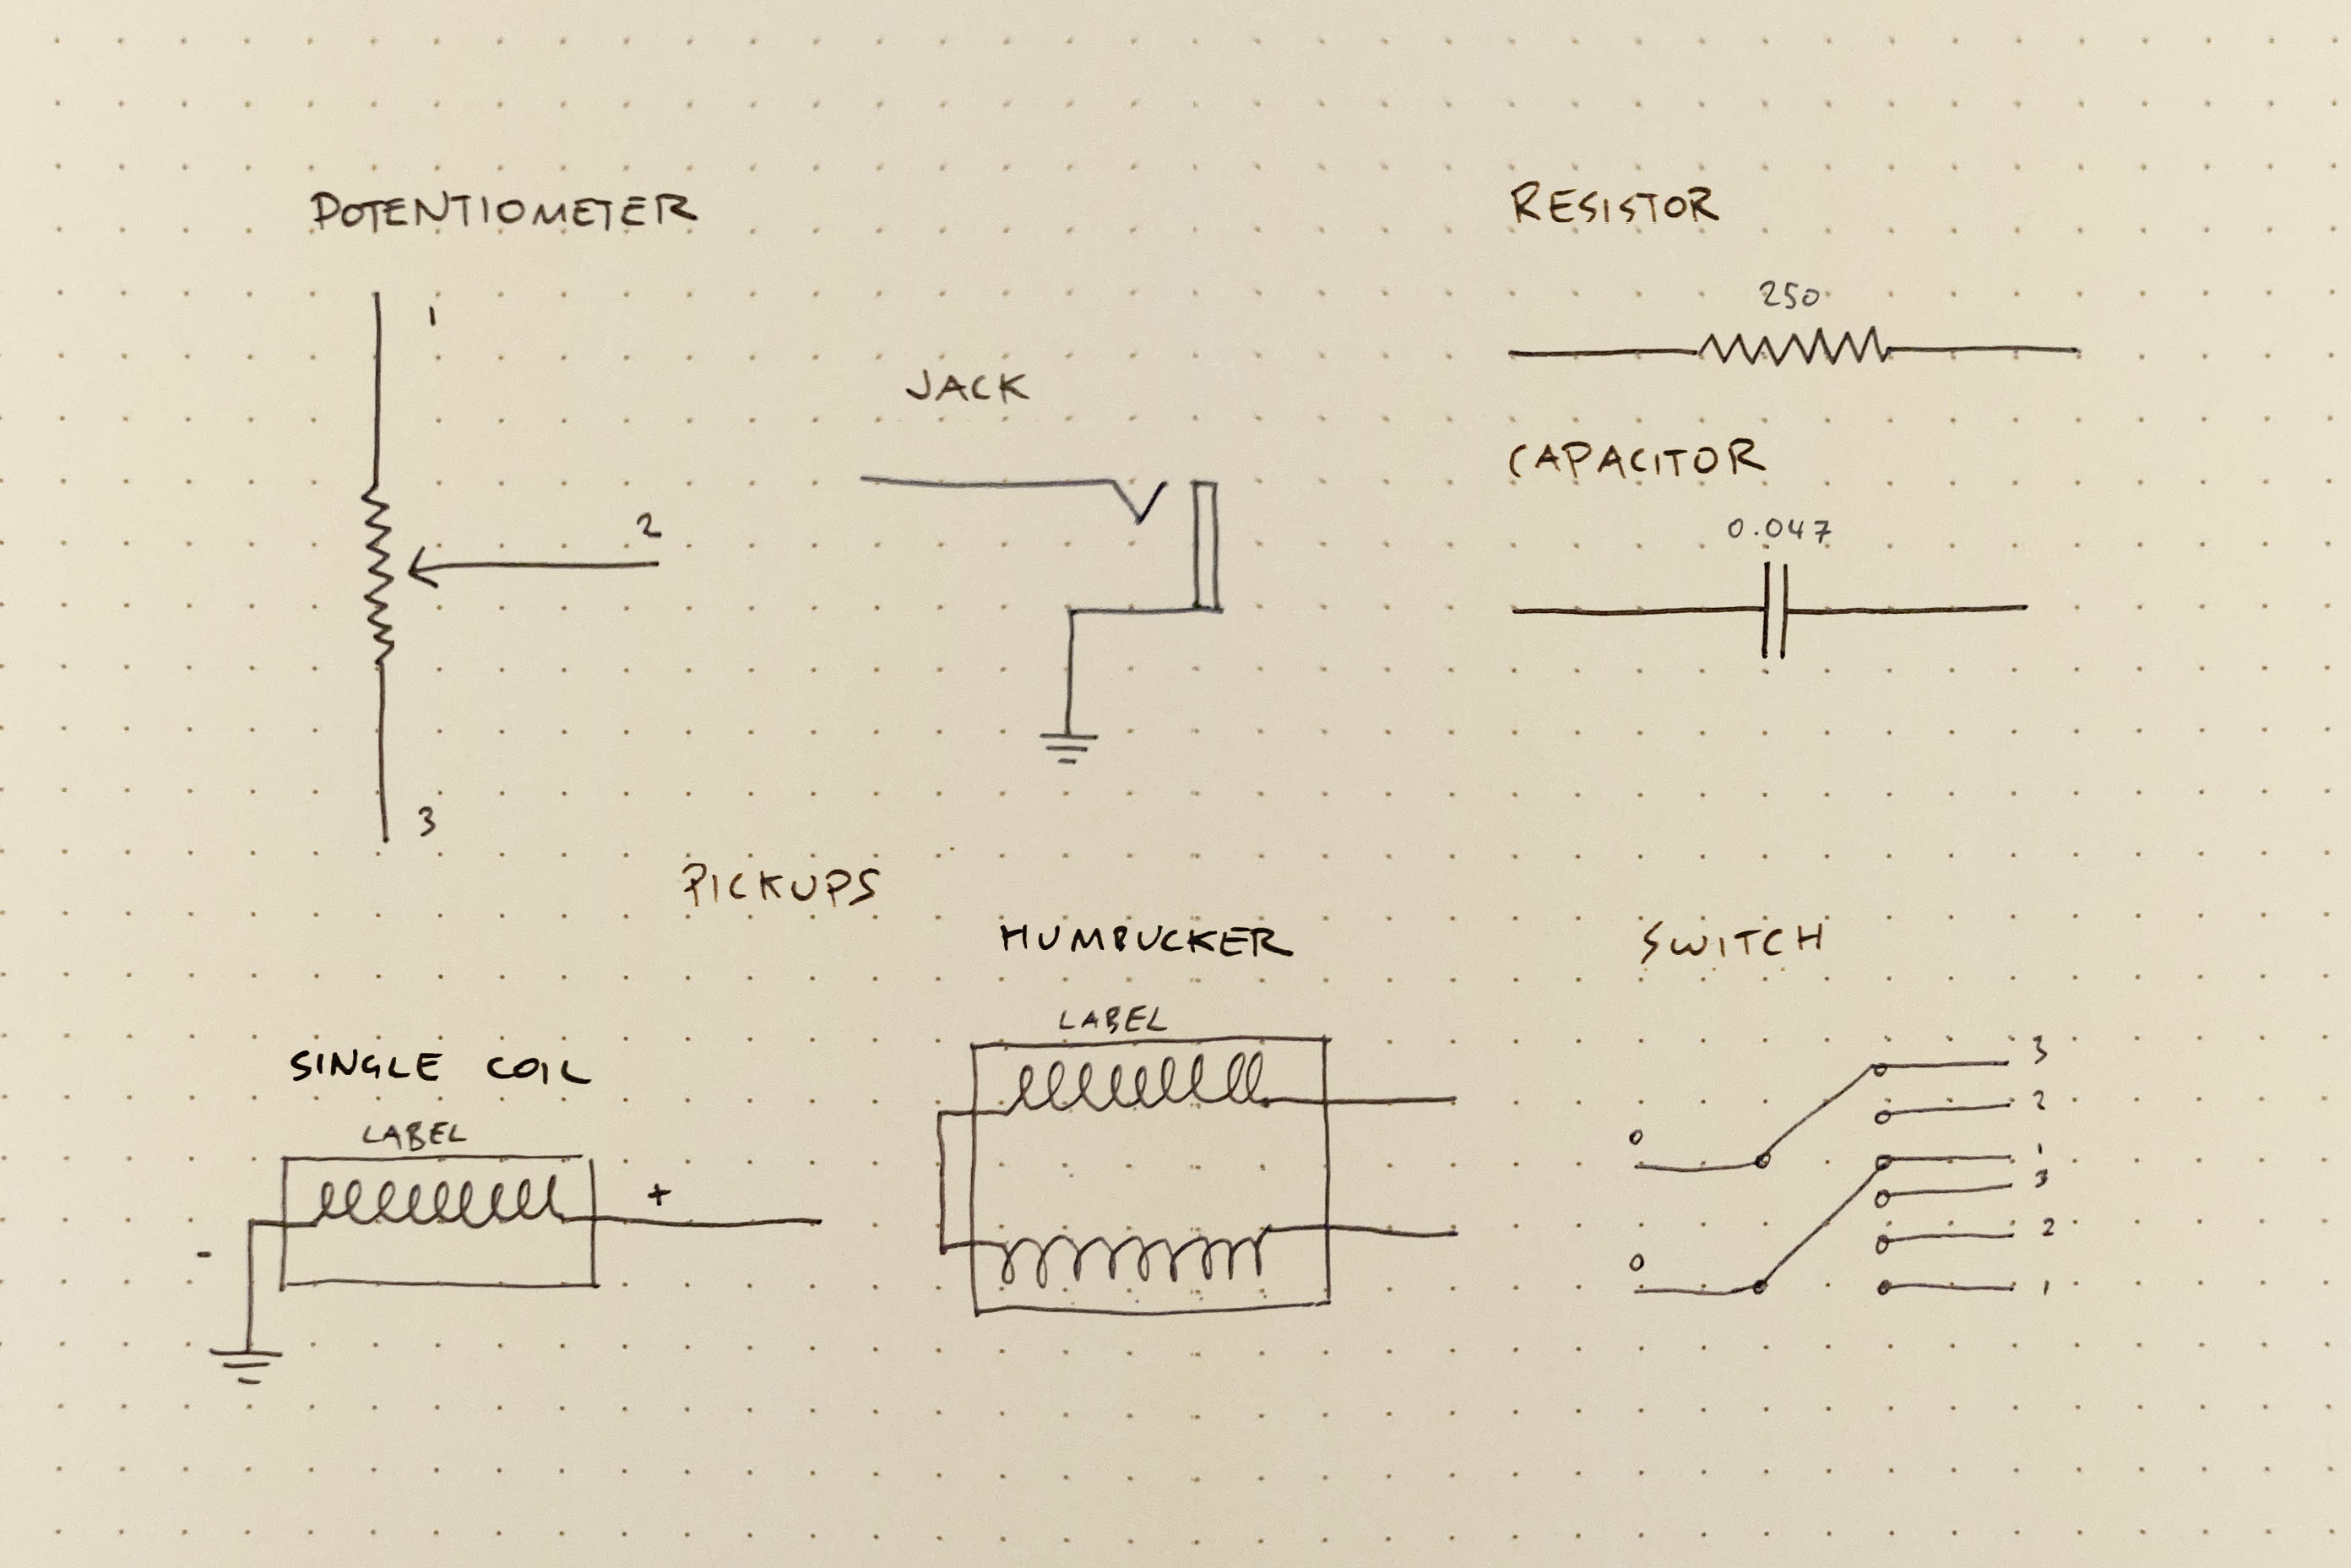 POTENTIOMETER
1
2
3
JACK
RESISTOR
250
CAPACITOR
0.047
PICKUPS
SINGLE COIL
LABEL
+
-
HUMBUCKER
LABEL
SWITCH
3
2
0
1
3
2
0
1